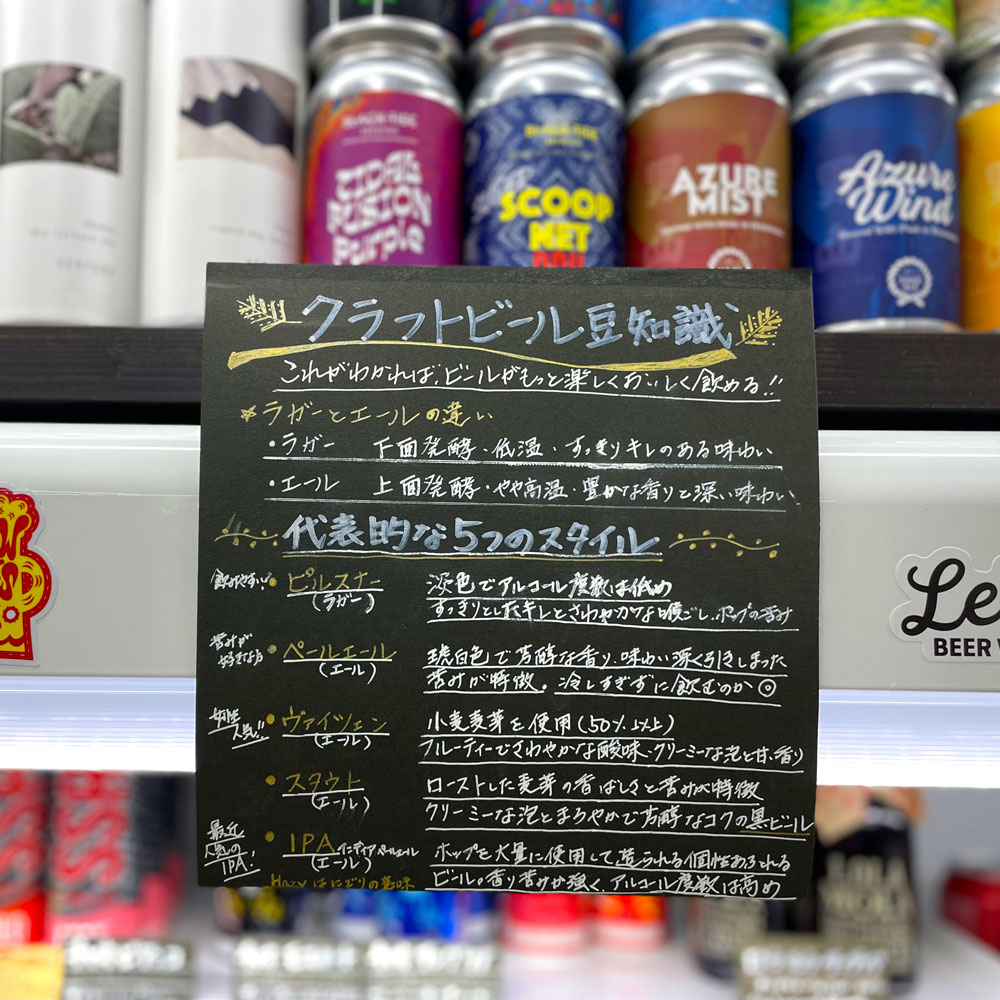 BLACK TIDE
TIDAL
FUSION
Purple
BLACK TIDE
SCOOP
NET
DDH
AZURE
MIST
Azure
Wind
クラフトビール豆知識
これがわかれば、ビールがもっと楽しくおいしく飲める!!
☆ラガーとエールの違い
・ラガー 下面発酵・低温・すっきりキレのある味わい
・エール 上面発酵・やや高温・豊かな香りと深い味わい
代表的な5つのスタイル
飲みやすい!!
・ピルスナー
(ラガー)
淡色でアルコール度数は低め
すっきりとしたキレとさわやかな喉ごし、ホップの苦み
苦みが
好きな方
・ペールエール
(エール)
琥珀色で芳醇な香り、味わい深く引きしまった
苦みが特徴。冷しすぎずに飲むのが◎
女性
人気!!
・ヴァイツェン
(エール)
小麦麦芽を使用(50%以上)
フルーティーでさわやかな酸味、クリーミーな泡と甘い香り
・スタウト
(エール)
ローストした麦芽の香ばしさと苦みが特徴
クリーミーな泡とまろやかで芳醇なコクの黒ビール
最近
人気の
IPA!
・IPA インディアペールエール
(エール)
ホップを大量に使用して造られる個性あふれる
ビール。香り苦みが強く、アルコール度数は高め
Hazyはにごりの意味
Le
BEER